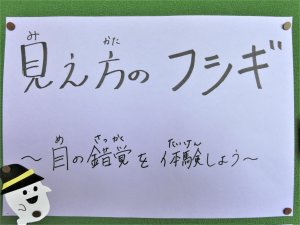 見え方の フシギ
～目の錯覚を体験しよう～